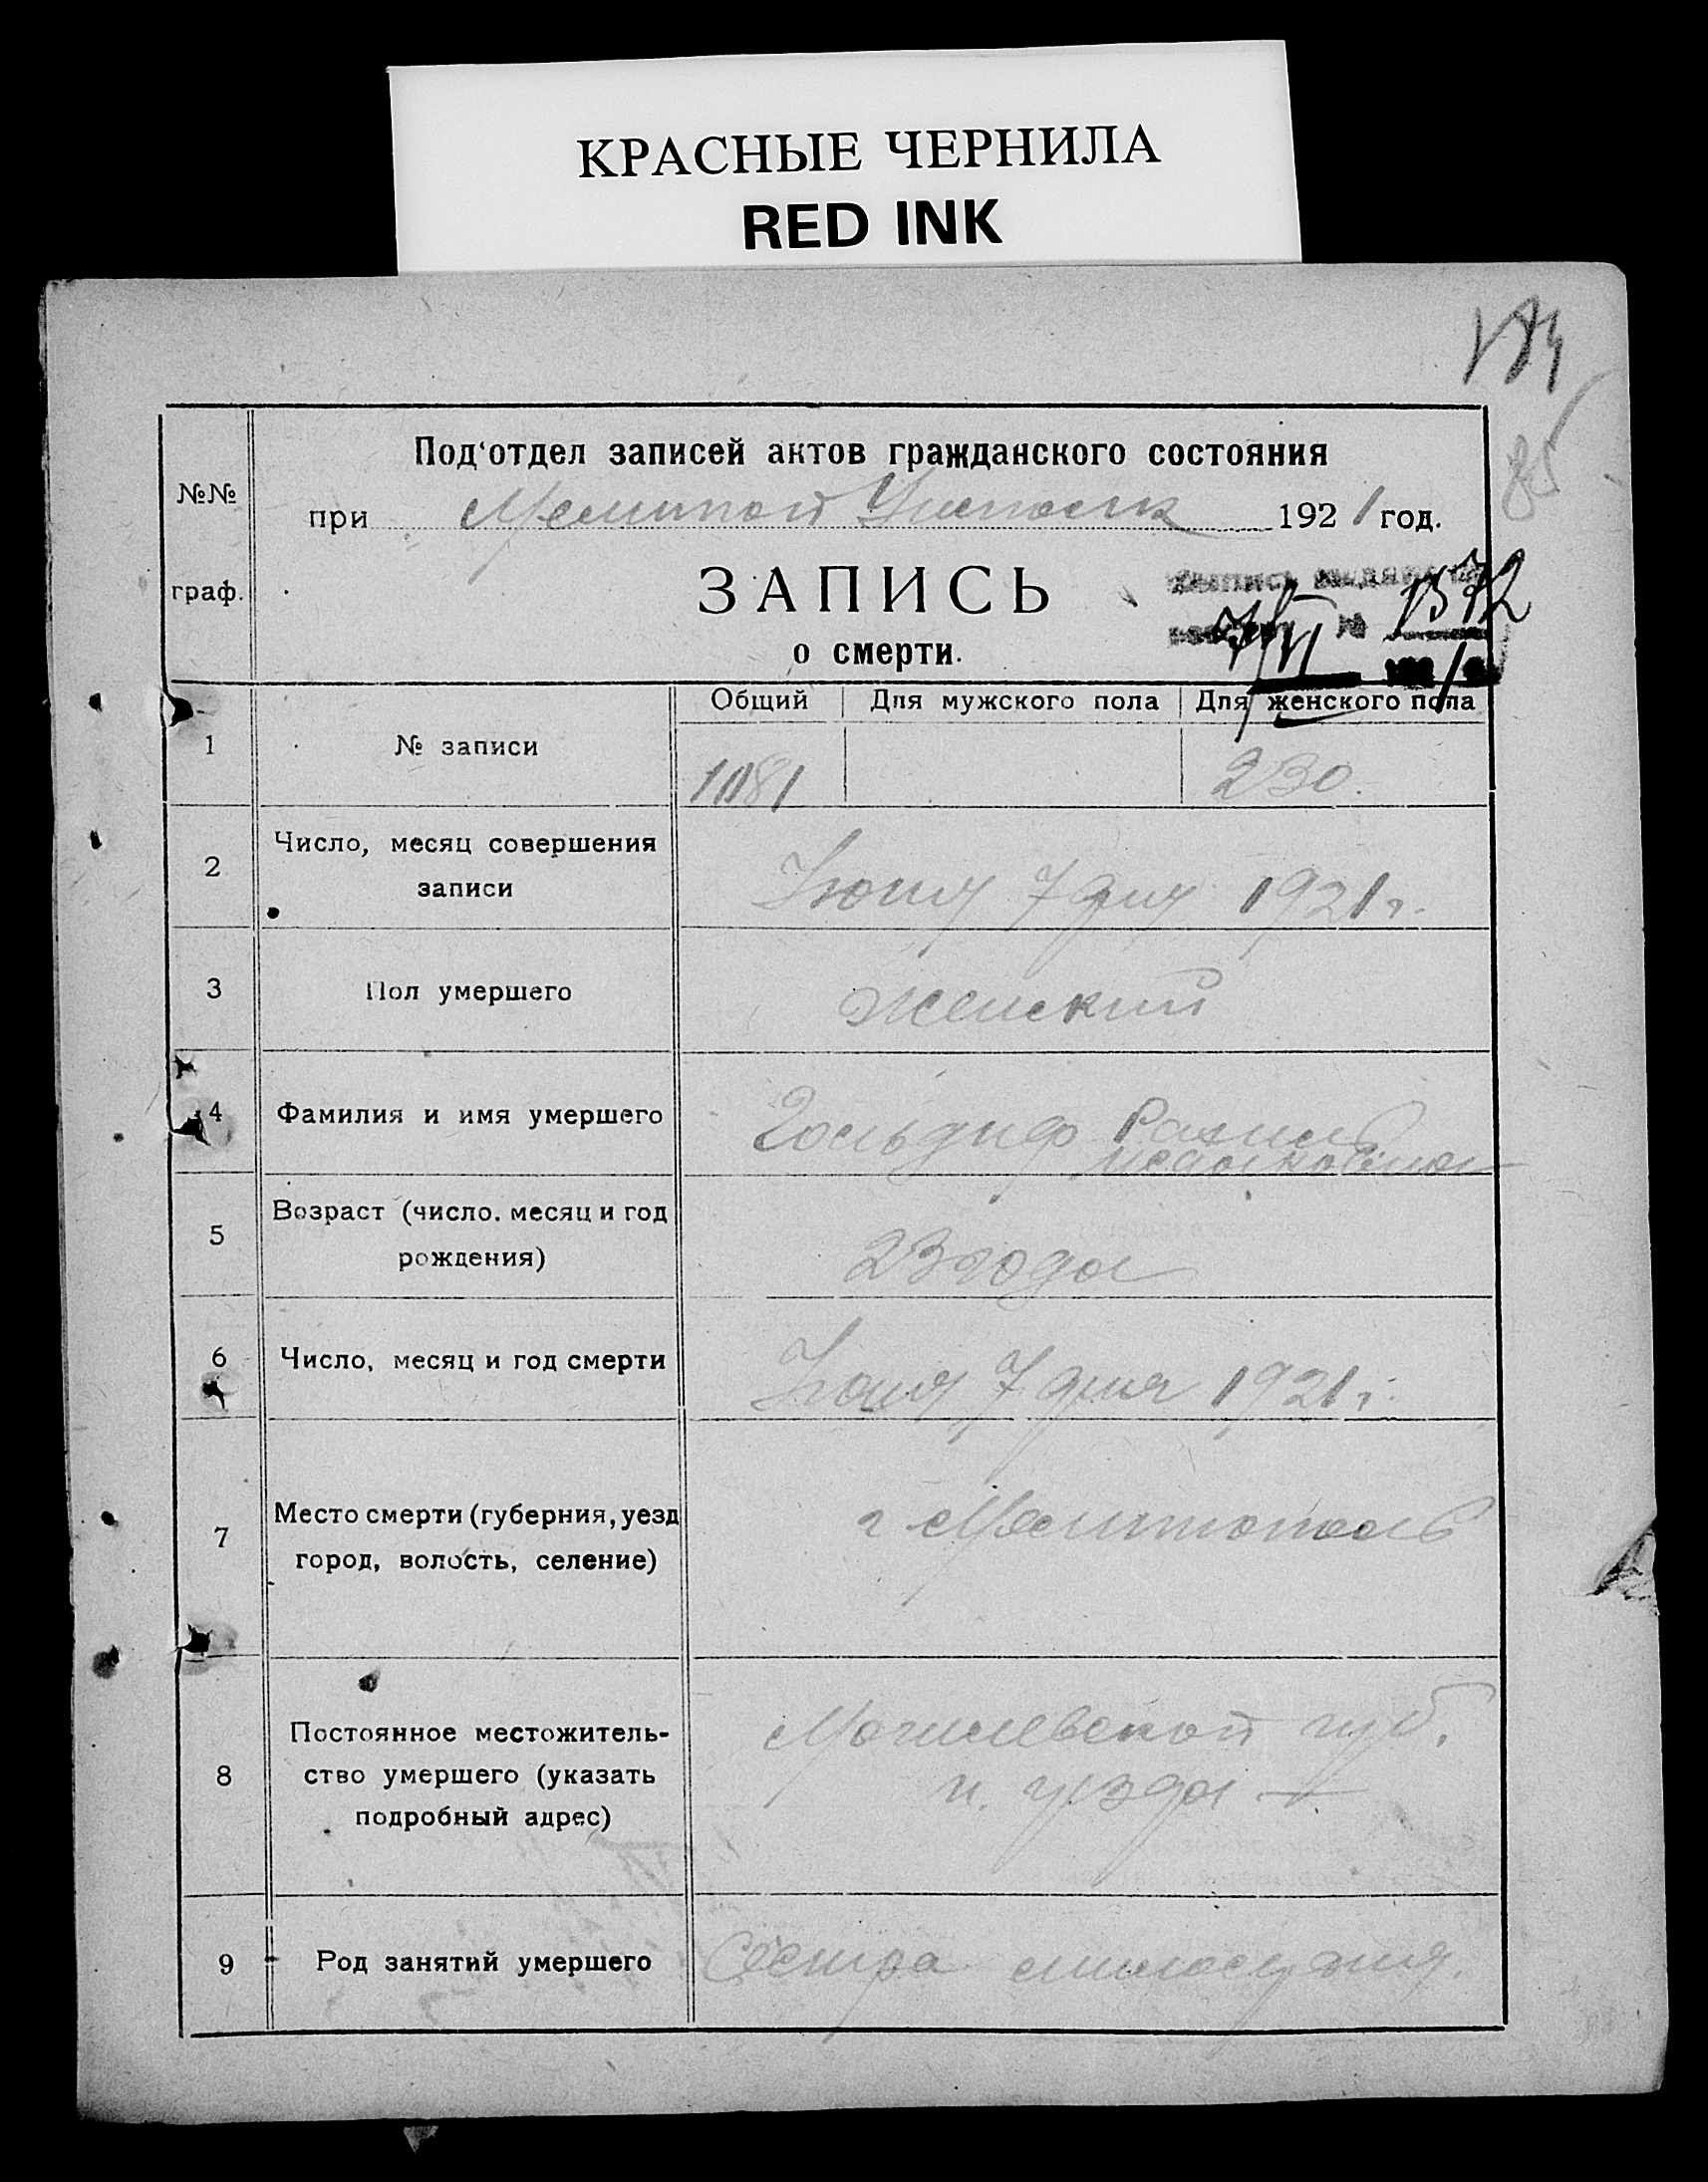 КРАСНЫЕ ЧЕРНИЛА
RED INK
85
№№
граф.
Под‘отдел записей актов гражданского состояния
при Мелитоп 1921 год.
ЗАПИСЬ
о смерти.
Выпись выдана
7/VI № 1572
Общий Для мужского пола Для женского пола
1 № записи 1081 230.
2 Число, месяц совершения
записи
Июня 7 дня 1921 г.
3 Пол умершего Женский
4 Фамилия и имя умершего Рахиль
5 Возраст (число, месяц и год
рождения)
23 года
6 Число, месяц и год смерти Июня 7 дня 1921 г.
7 Место смерти (губерния, уезд
город, волость, селение)
г Мелитополь
8 Постоянное местожитель-
ство умершего (указать
подробный адрес)
Могилевской губ.
и. уезда
9 Род занятий умершего Сестра милосердия.